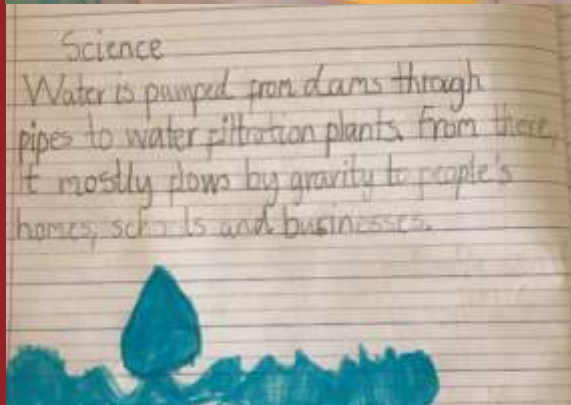 Science
Water is pumped from dams through
pipes to water filtration plants. From there,
it mostly flows by gravity to people's
homes, schools and businesses.